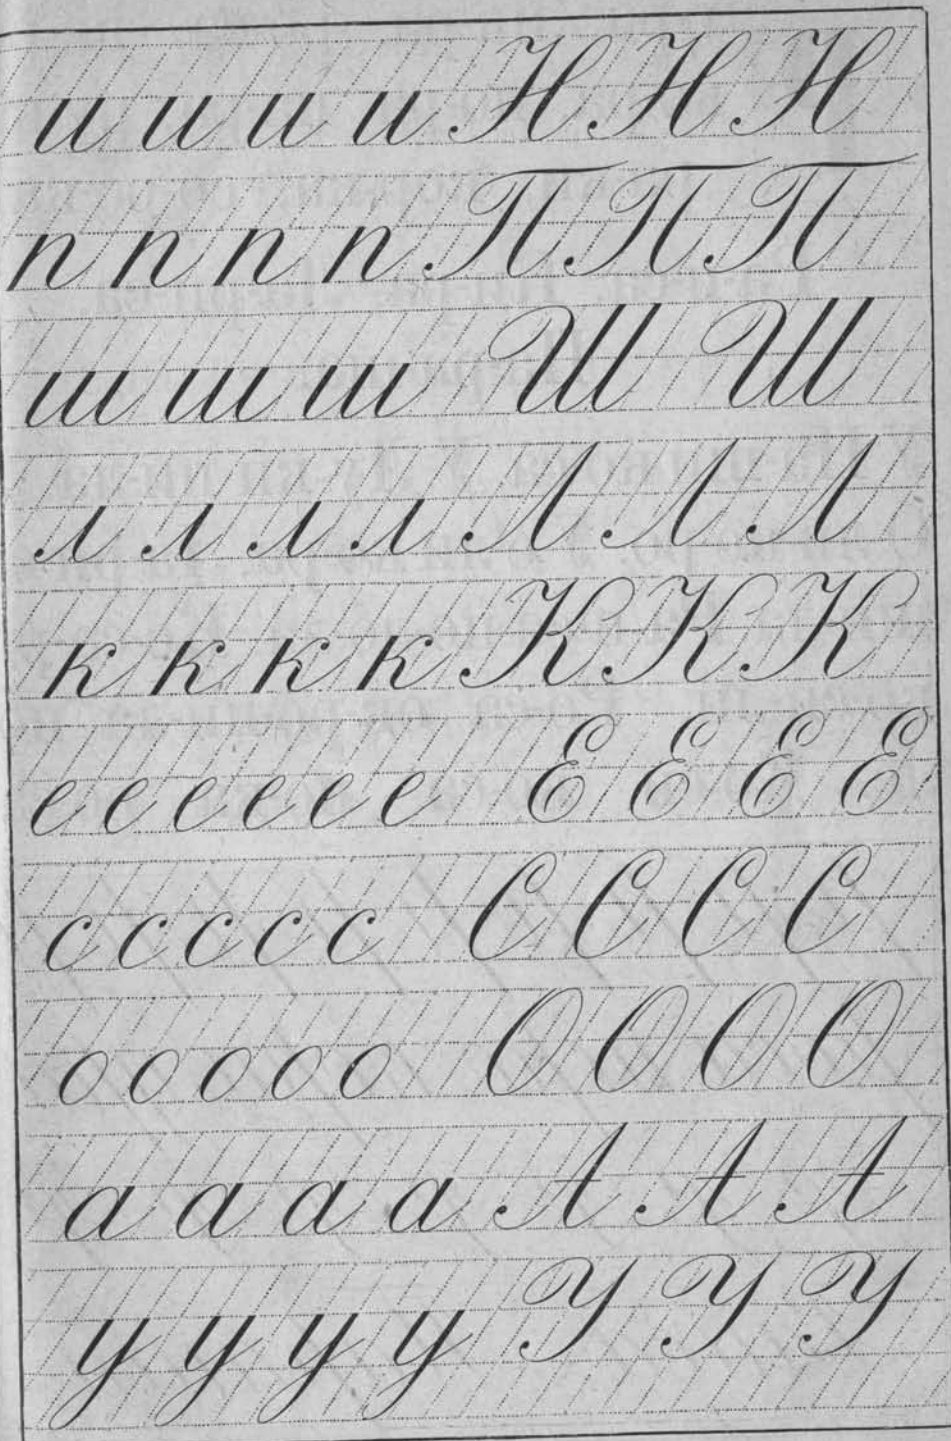 и и и и Н Н Н
п п п п П П П
ш ш ш Ш Ш
л л л л Л Л Л
к к к к К К К
е е е е е е Е Е Е Е
с с с с с С С С С
о о о о о О О О О
а а а а А А А
у у у у У У У